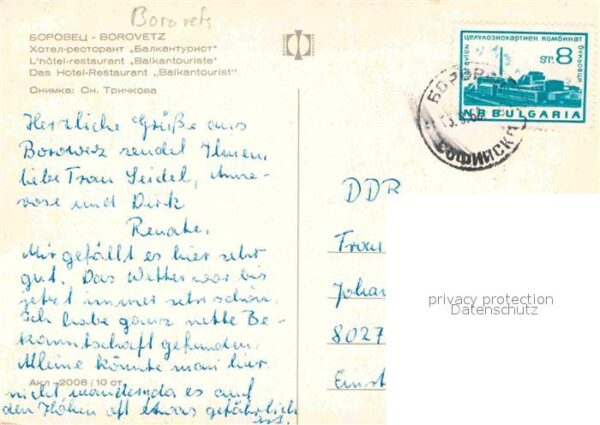 Borovets
БОРОВЕЦ - BOROVETZ
Хотел-ресторант „Балкантурист"
L'hôtel-restaurant „Balkantouriste"
Das Hotel-Restaurant „Balkantourist"
Снимка: Сн. Тричкова
Herzliche Grüße aus
Borowez sendet Ihnen,
liebe Frau Seidel, Anne-
rose und Dirk
Renate.
Mir gefällt es hier sehr
gut. Das Wetter war bis
jetzt immer sehr schön.
Ich habe ganz nette Be-
kanntschaft gefunden.
Alleine könnte man hier
Акл - 2008 / 10 от
nicht wandern, da es auf
den Höhen oft etwas gefährlich
ist.
par avion
целулознохартиен комбинат
ст. 8
NR BULGARIA
БОРОВЕЦ
СОФИЙСКА
DDR
Frau
Johan
8027
Einst
privacy protection
Datenschutz